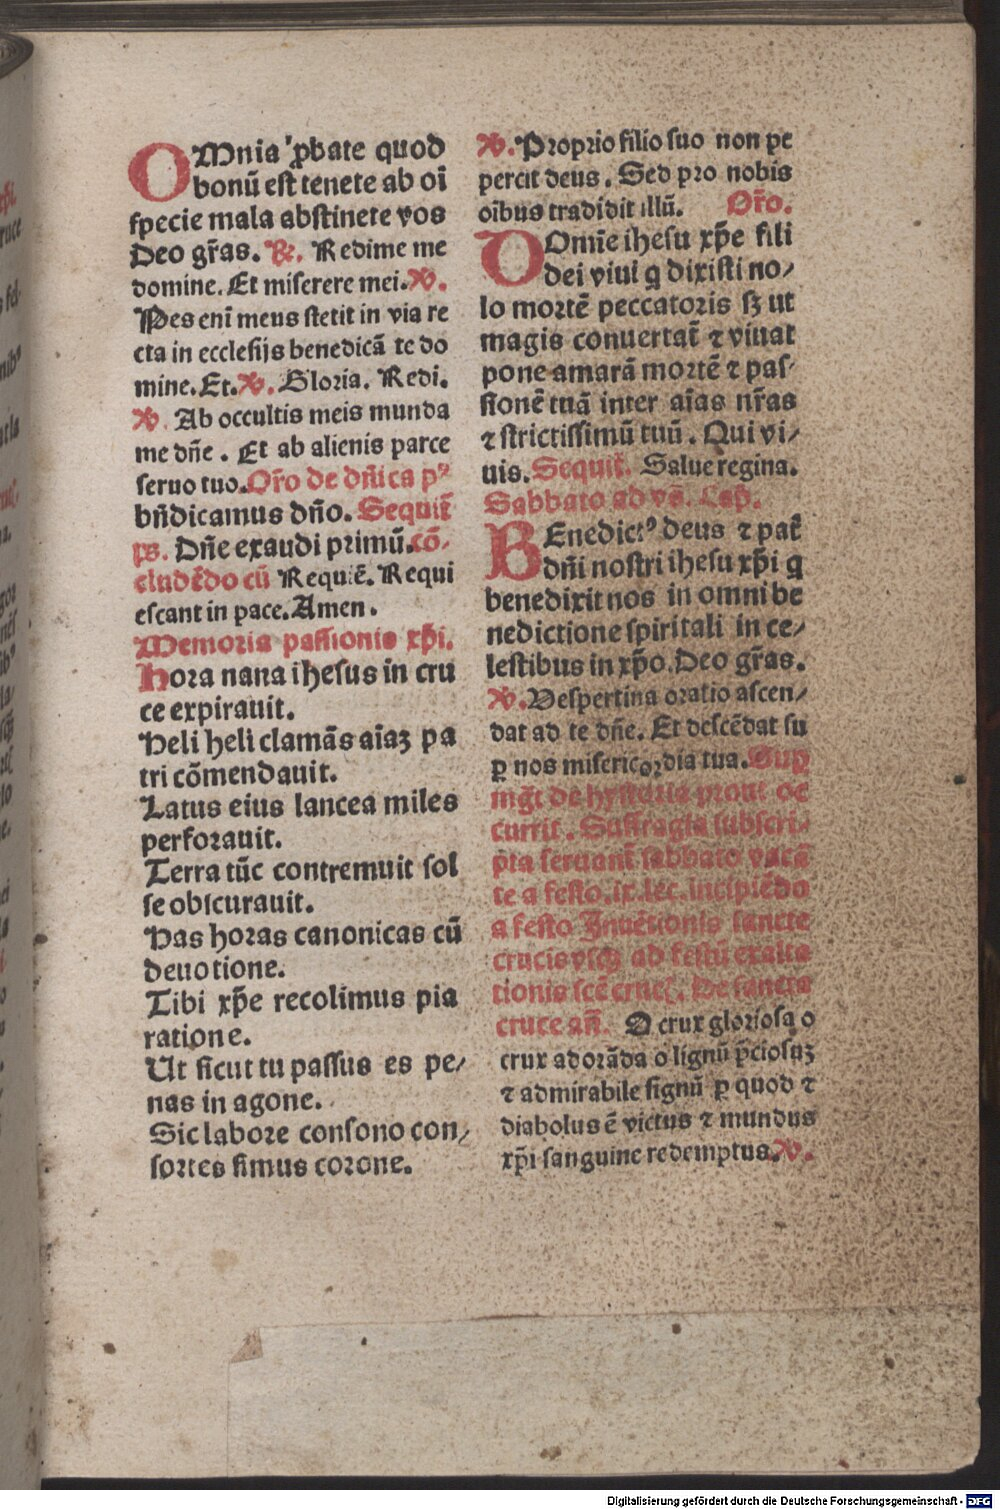 OMnia ꝓbate quod
bonū est tenete ab oī
specie mala abstinete vos
Deo gr̄as. ℟. Redime me
domine. Et miserere mei. ℣.
Pes enī meus stetit in via re
cta in ecclesijs benedicā te do
mine. Et. ℣. Gloria. Redi.
℣. Ab occultis meis munda
me dn̄e . Et ab alienis parce
seruo tuo. Or̄o de dn̄ica
bn̄dicamus dn̄o. Sequit̄
ps. Dn̄e exaudi primū. cō-
cludēdo cū Requiē. Requi
escant in pace. Amen.
Memoria passionis xp̄i.
Hora nana ihesus in cru
ce expirauit.
Heli heli clamās aīaꝫ pa
tri cōmendauit.
Latus eius lancea miles
perforauit.
Terra tūc contremuit sol
se obscurauit.
Has horas canonicas cū
deuotione.
Tibi xp̄e recolimus pia
ratione.
Ut sicut tu passus es pe/
nas in agone.
Sic labore consono con/
sortes simus corone.
℣. Proprio filio suo non pe
percit deus. Sed pro nobis
oībus tradidit illū. Or̄o.
DOmīe ihesu xp̄e fili
dei viui q dixisti no/
lo mortē peccatoris sꝫ ut
magis conuertat̄ ⁊ viuat
pone amarā mortē ⁊ pas-
sionē tuā inter aīas nr̄as
⁊ strictissimū tuū. Qui vi/
uis. Sequit̄. Salue regina.
Sabbato ad vs̄. Cap̄.
BEnedictꝰ deus ⁊ pat̄
dn̄i nostri ihesu xp̄i q
benedixit nos in omni be
nedictione spiritali in ce/
lestibus in xp̄o. Deo gr̄as.
℣. Vespertina oratio ascen/
dat ad te dn̄e. Et descēdat su
ꝑ nos misericordia tua. Suꝑ
mg̅t de hystoria prout oc
currit. Suffragia subscri-
pta seruant̄ sabbato vacā
te a festo. ix. lec. incipiēdo
a festo Inuētionis sancte
crucis vsqꝫ ad festū exalta
tionis scē cruc̄. De sancta
cruce an̄. O crux gloriosa o
crux adorāda o lignū p̄ciosuꝫ
⁊ admirabile signū ꝑ quod ⁊
diabolus ē victus ⁊ mundus
xp̄i sanguine redemptus. ℣.
Digitalisierung gefördert durch die Deutsche Forschungsgemeinschaft - DFG